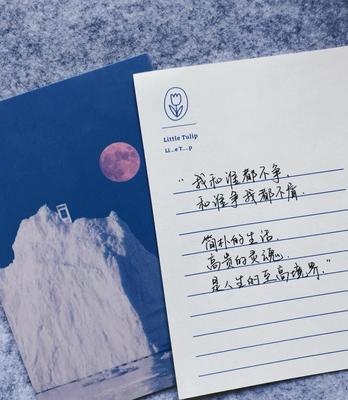 Little Tulip
Li...e T...p
"我和谁都不争.
和谁争我都不屑
简朴的生活
高贵的灵魂
是人生的至高境界."